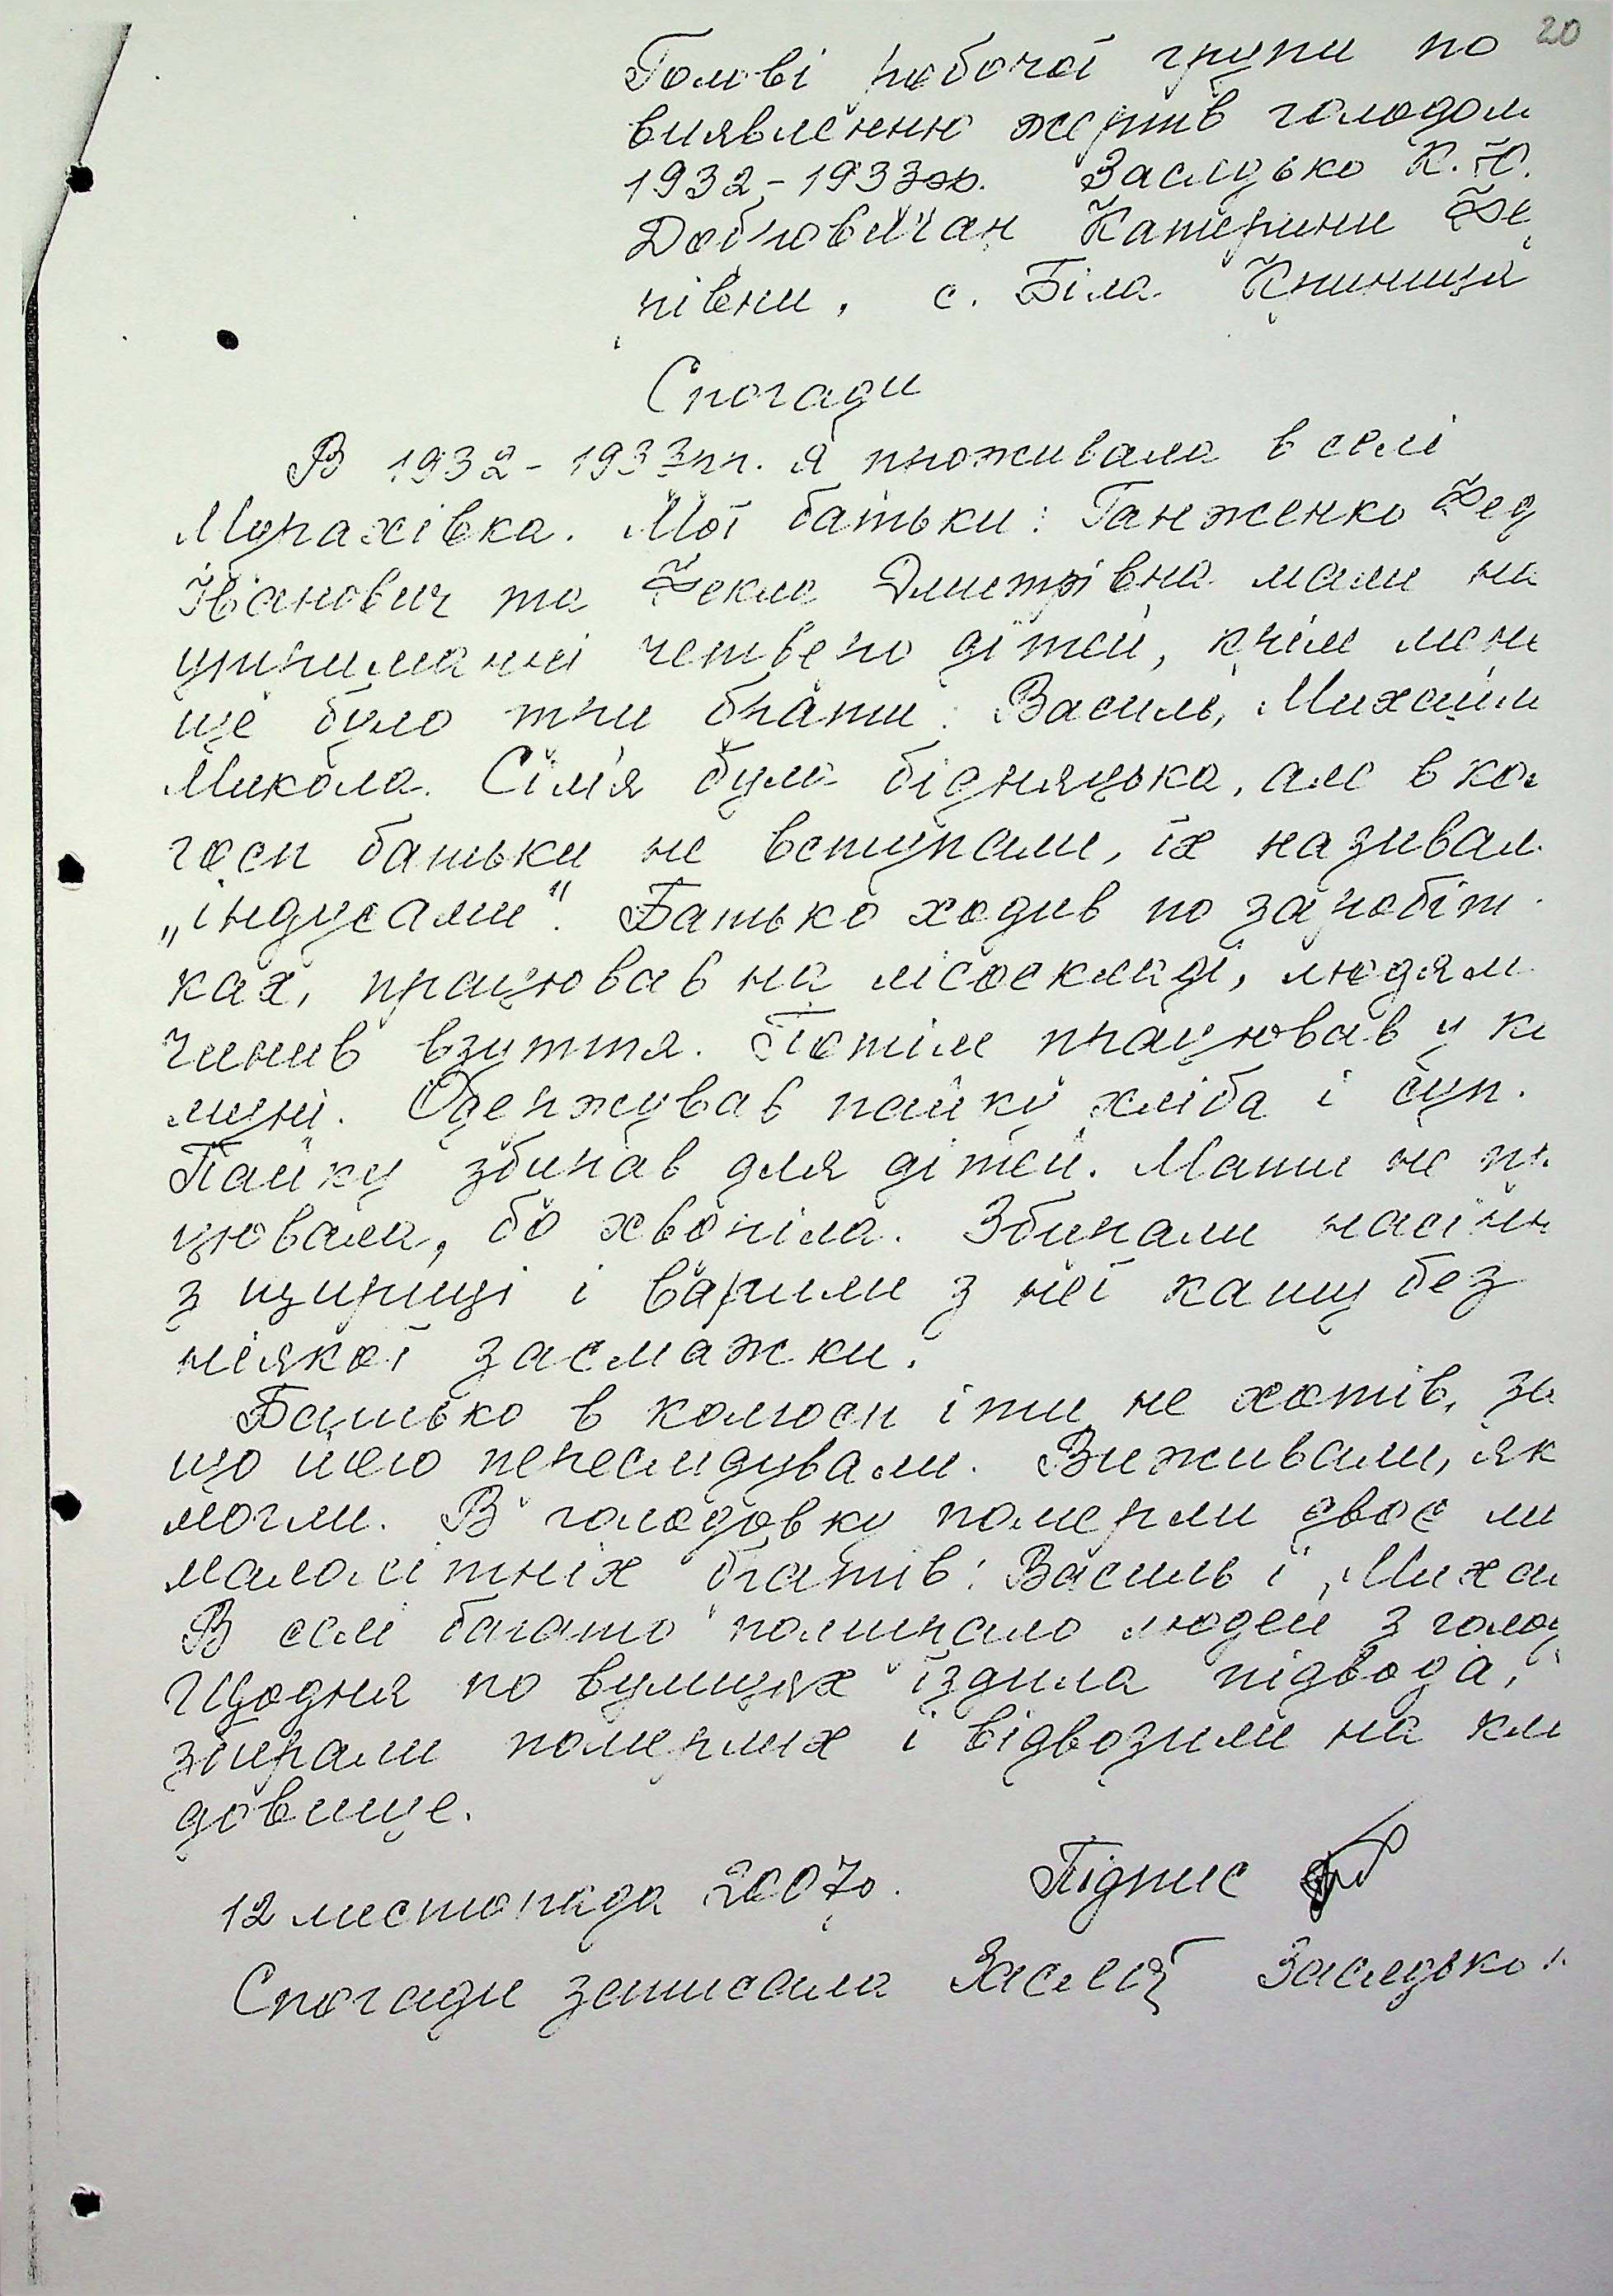 20
Голові робочої групи по
виявленню жертв голодом
1932-1933рр. Заслдько К. Ю.
Катерини Фе
рівни, с. Біла Криниця
Спогади
В 1932-1933рр. я проживала в селі
Мурахівка. Мої батьки: Ганженко Фед
Іванович та Фекла Дмитрівна мали на
утриманні четверо дітей, крім мене
ще було три брати: Василь, Михайл
Микола. Сім'я була бідняцька, але в кол
госп батьки не вступали, їх називал
„індусами". Батько ходив по заробіт
ках, працював на лісоскладі, людям
чинив взуття. Потім працював у ко
муні. Одержував пайку хліба і суп.
Пайку збирав для дітей. Мати не пр
цювала, бо хворіла. Збирали насінн
з щириці і варили з неї кашу без
ніякої засмажки.
Батько в колгосп іти не хотів, за
що його переслідували. Виживали, як
могли. В голодовку померли двоє мо
малолітніх братів: Василь і Миха
В селі багато помирало людей з голоду
Щодня по вулицях їздила підвода,
збирали померлих і відвозили на кла
довище.
12 листопада 2007р. Підпис
Спогади записала Заслдько